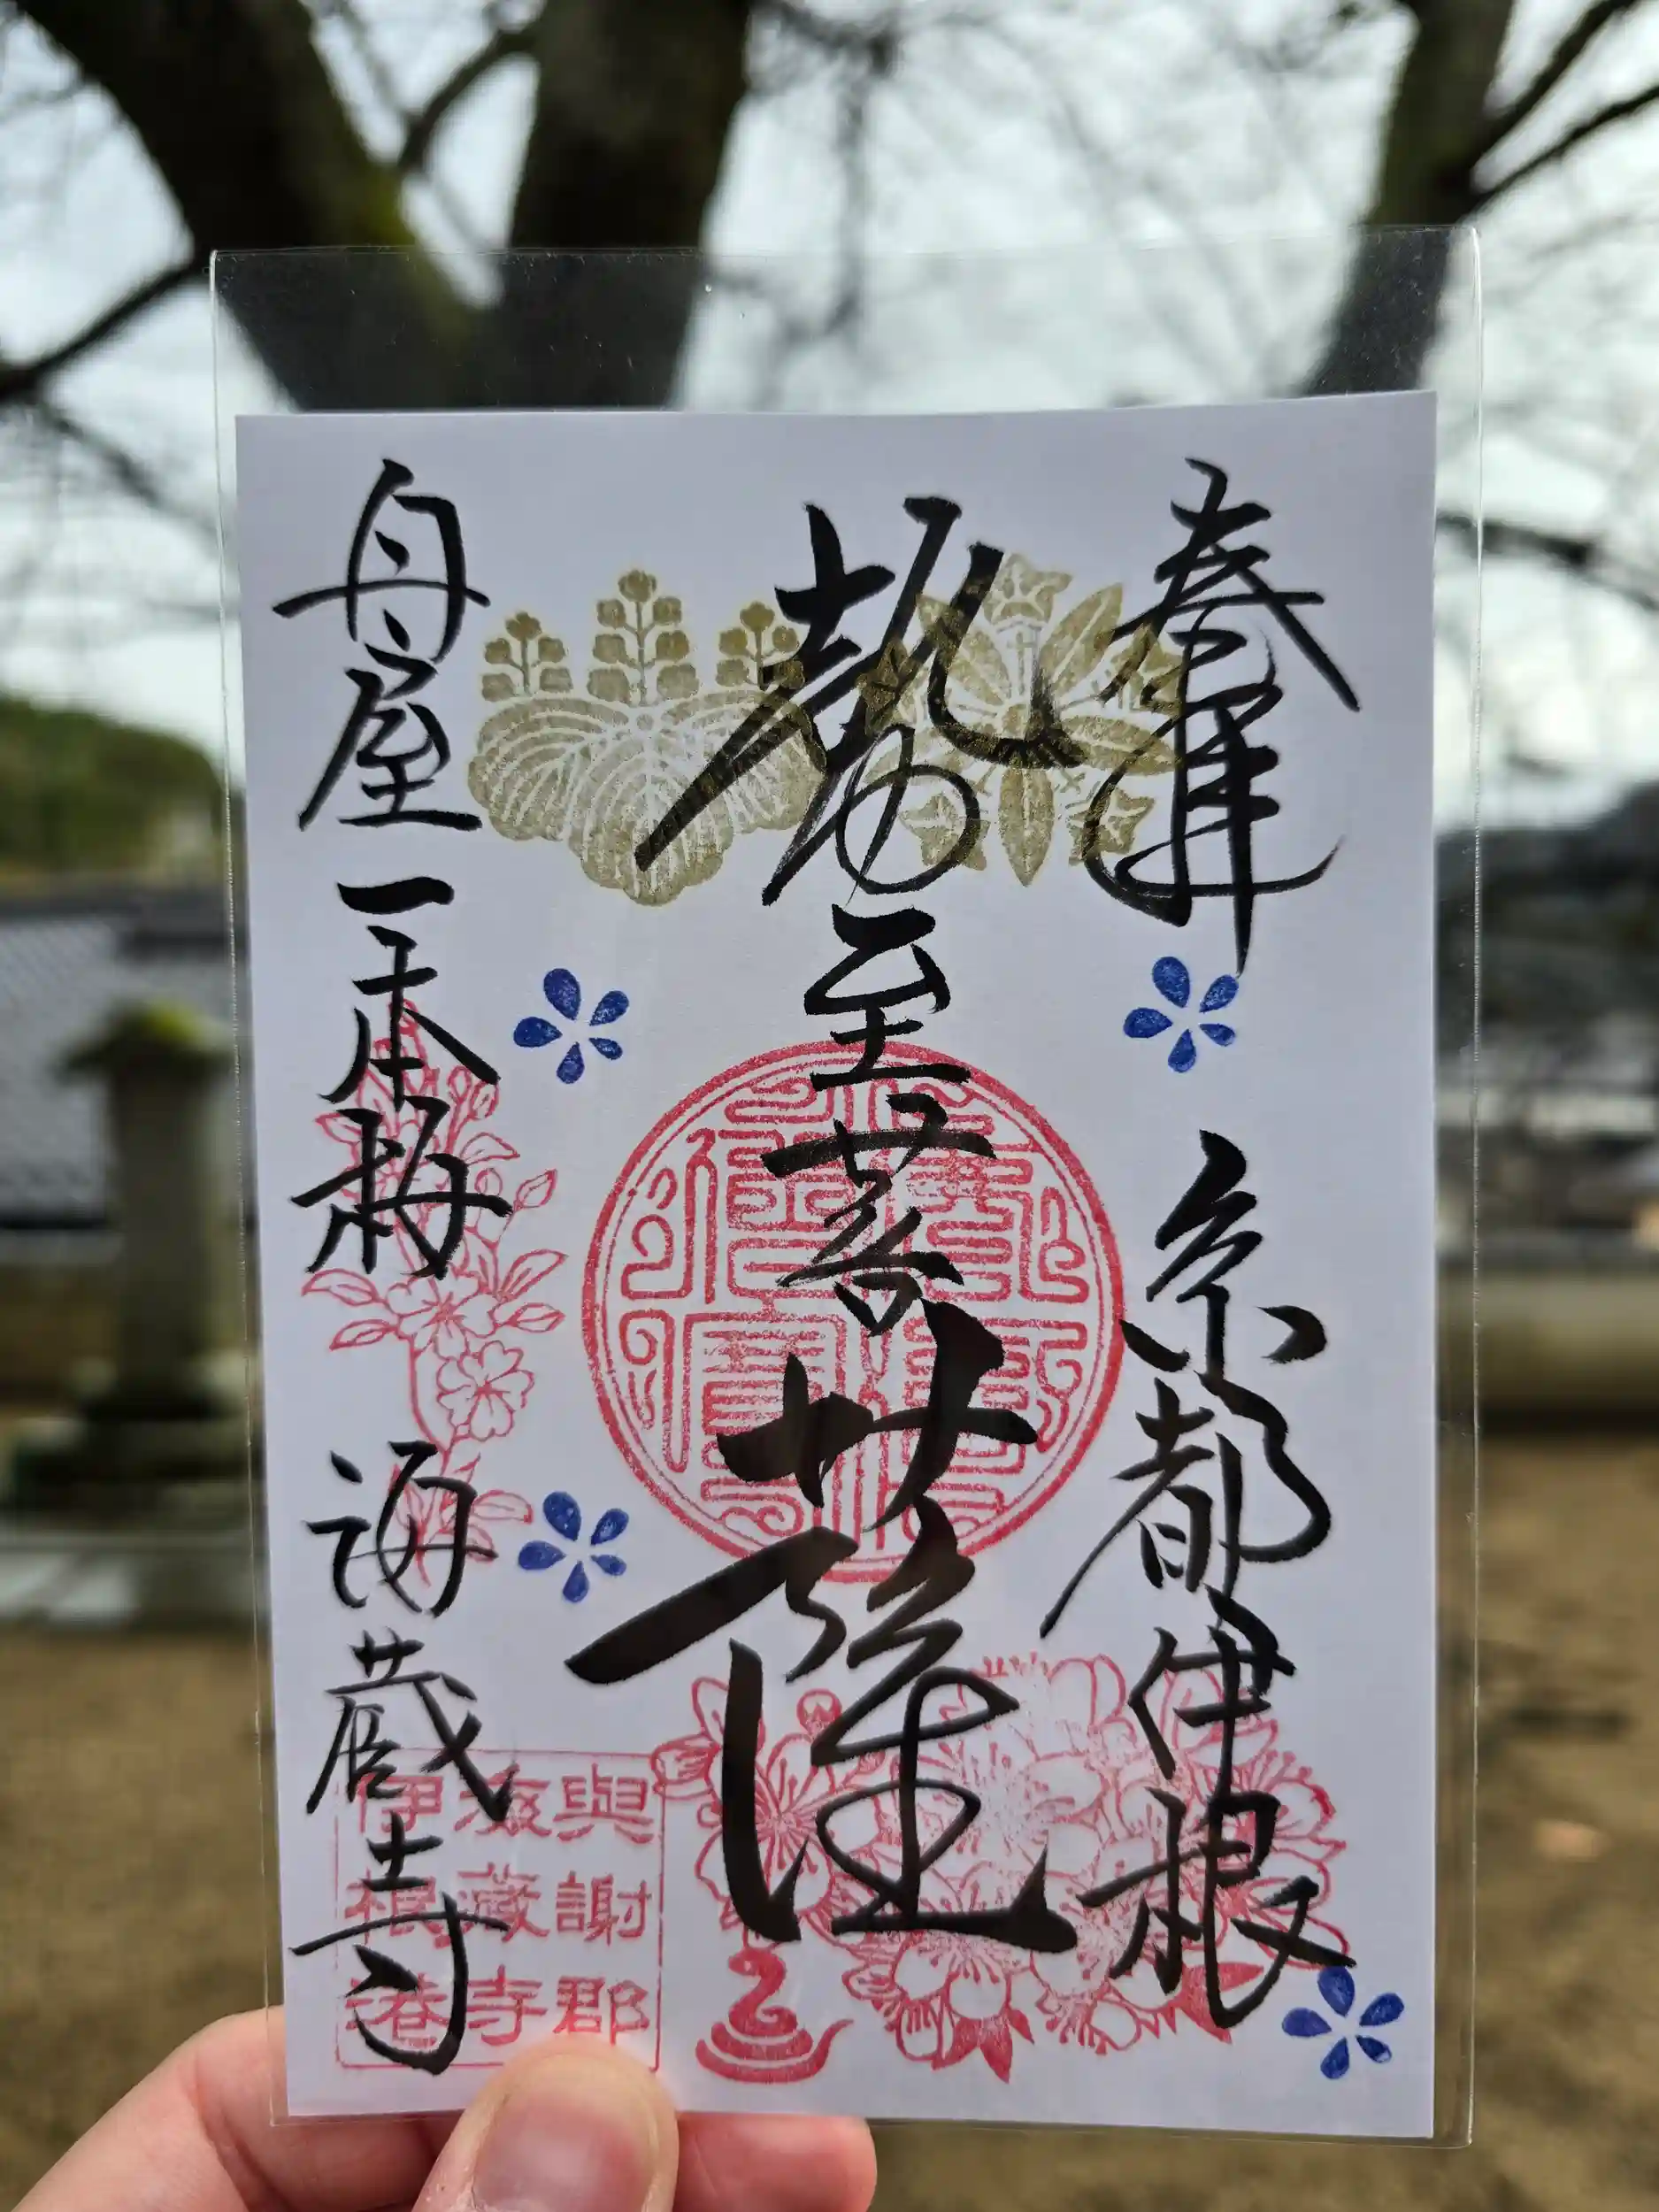 奉拝 京都伊根
勢至菩薩
舟屋 一本梅 海蔵寺
與謝郡
海蔵寺
伊根港